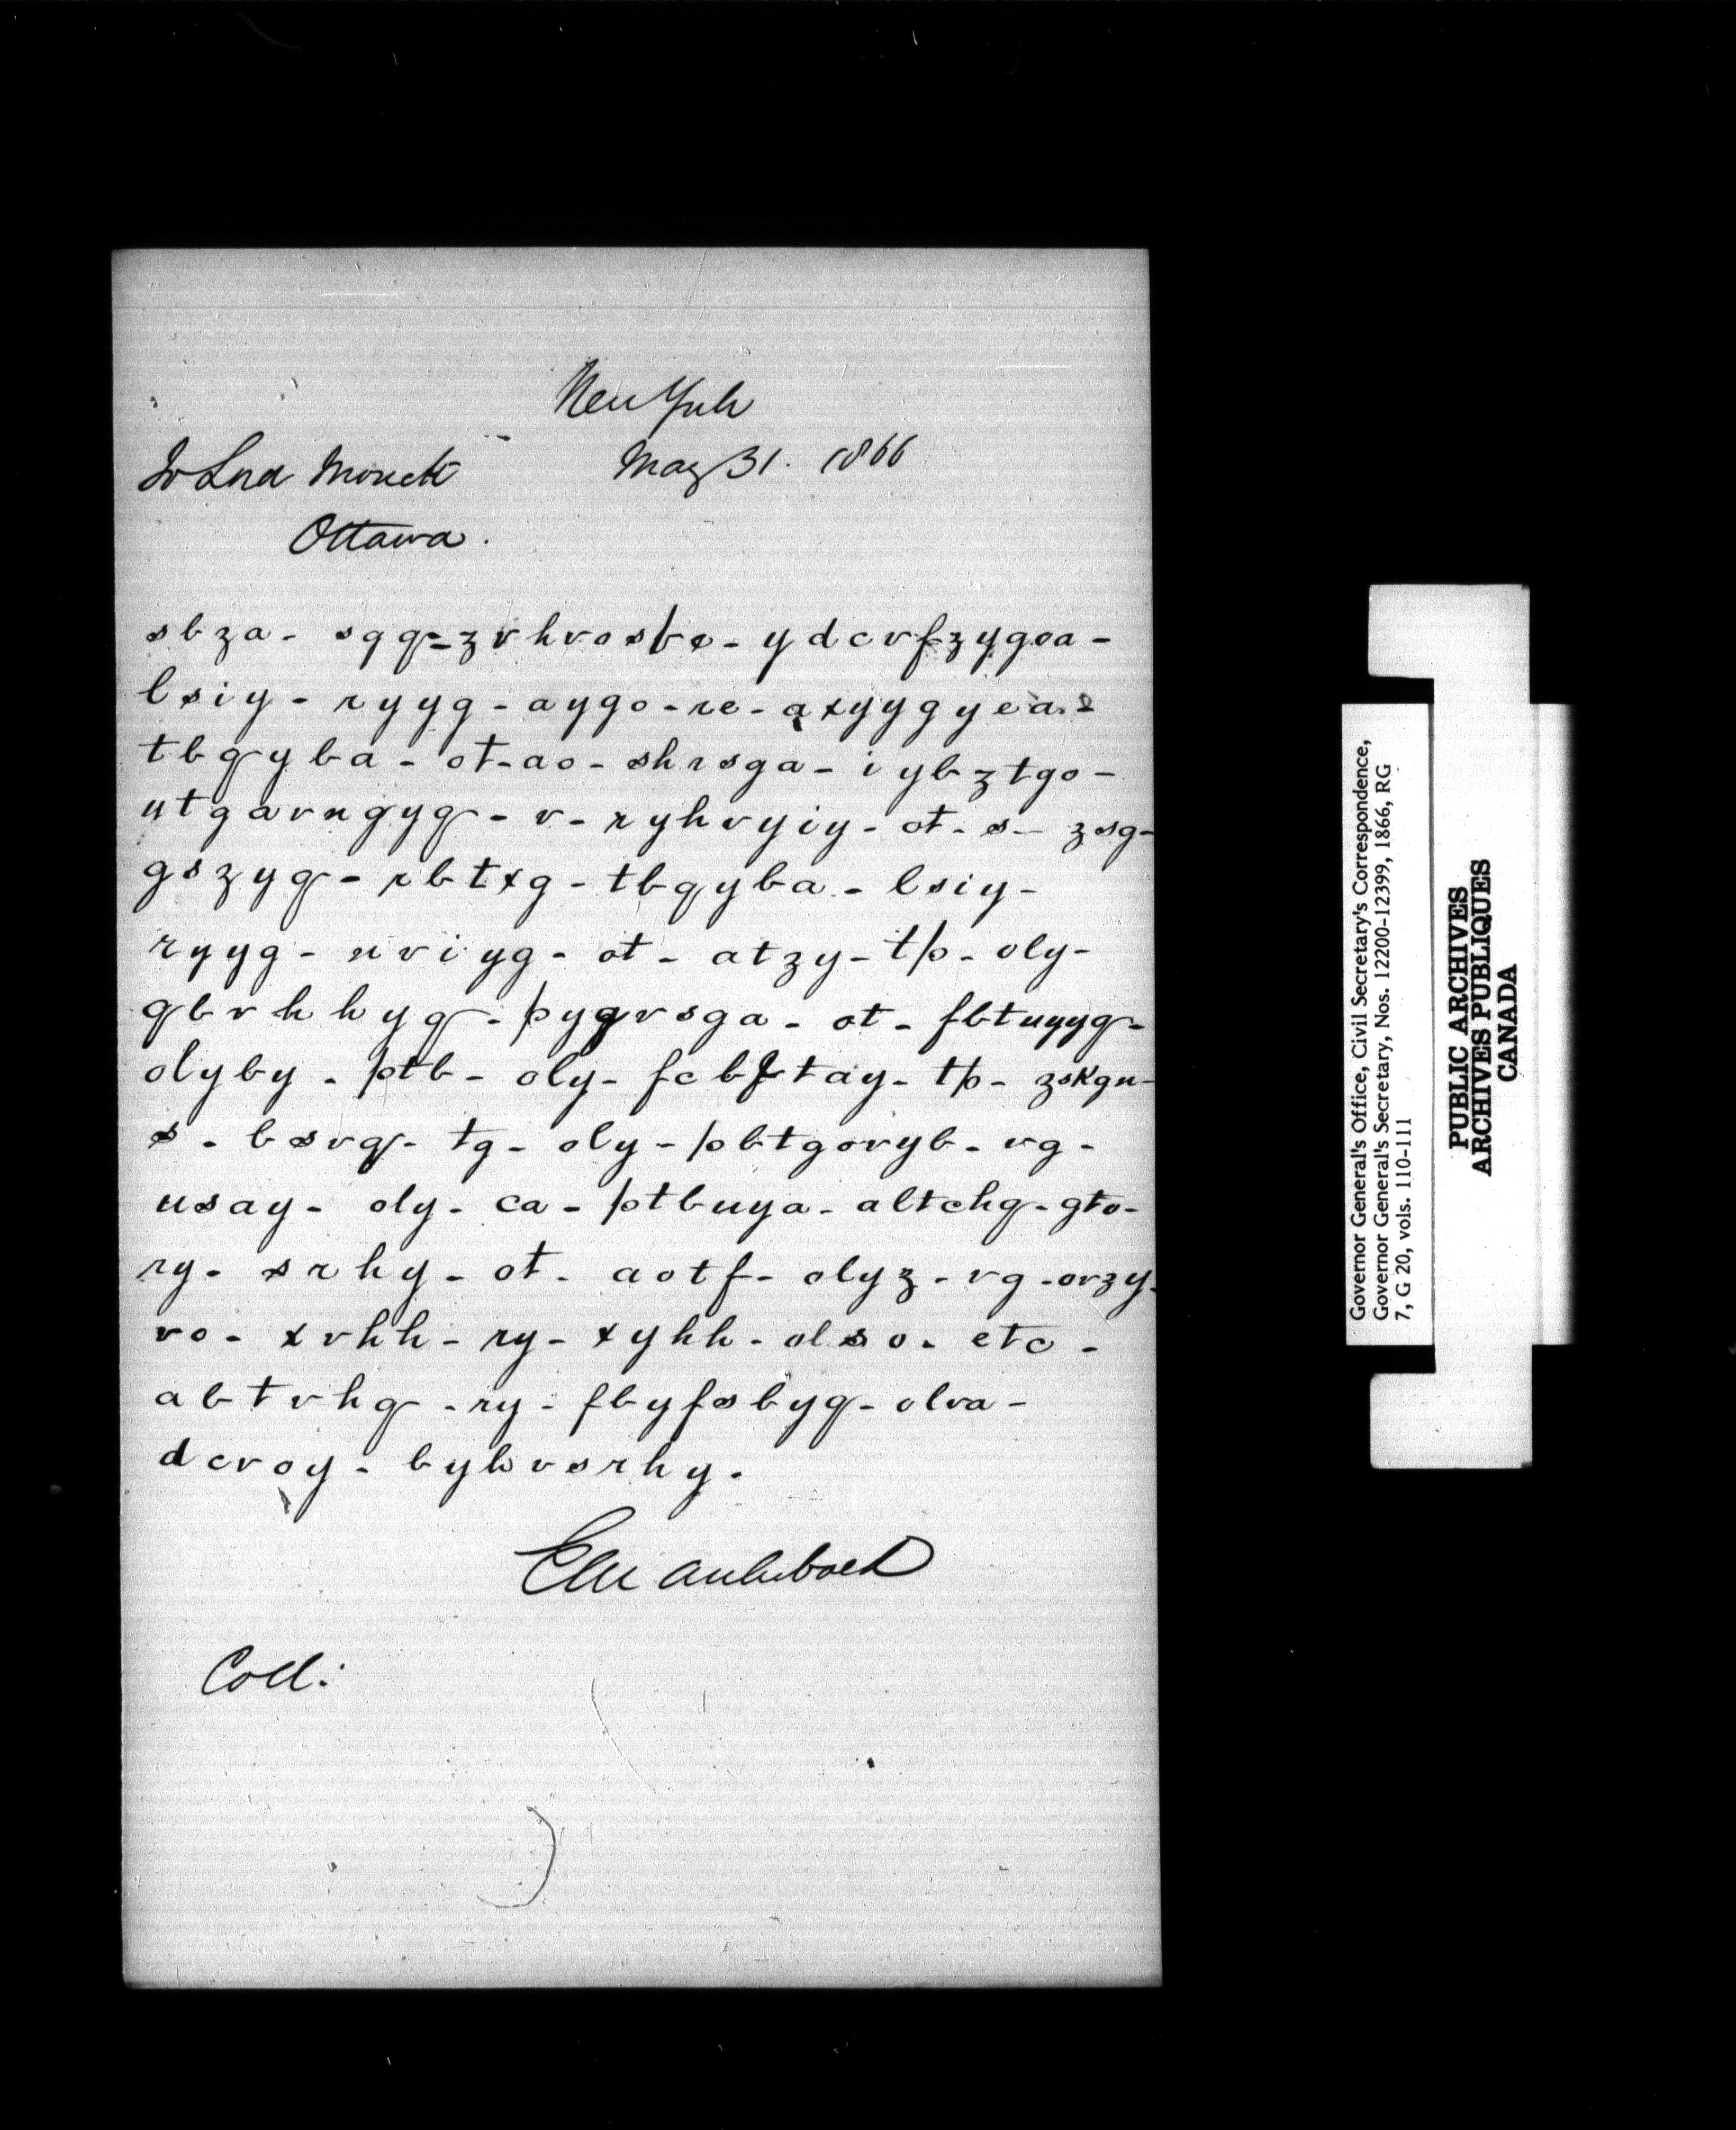 New York
May 31. 1866
To Lord Monck
Ottawa.
sbza - sqq - zvhvosbe - ydcvfzygoa -
lsiy - ryyg - aygo - re - axyygyea -
tbqyba - ot - ao - shrsga - iybztgo -
utgavngyq - v - ryhvyiy - ot - s - zsg -
gszyq - rbtxg - tbqyba - lsiy -
ryyg - uviyg - ot - atzy - tp - oly -
qbvhhyq - pygvsga - ot - fbtuyyq -
olyby - ptb - oly - fcbftay - tp - zskgn -
s - bsvq - tg - oly - pbtgovyb - vg -
usay - oly - ca - ptbuya - altchq - gto -
ry - srhy - ot - aotf - olyz - vg - ovzy -
vo - xvhh - ry - xyhh - olso - etc -
abtvhq - ry - fbyfsbyq - olva -
dcvoy - byhvsrhy.
Coll:
Governor General's Office, Civil Secretary's Correspondence,
Governor General's Secretary, Nos. 12200-12399, 1866, RG
7, G 20, vols. 110-111
PUBLIC ARCHIVES
ARCHIVES PUBLIQUES
CANADA